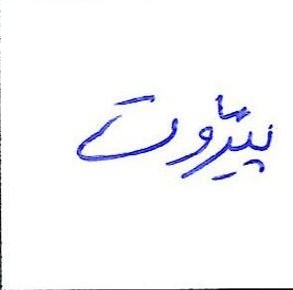 پیژوت